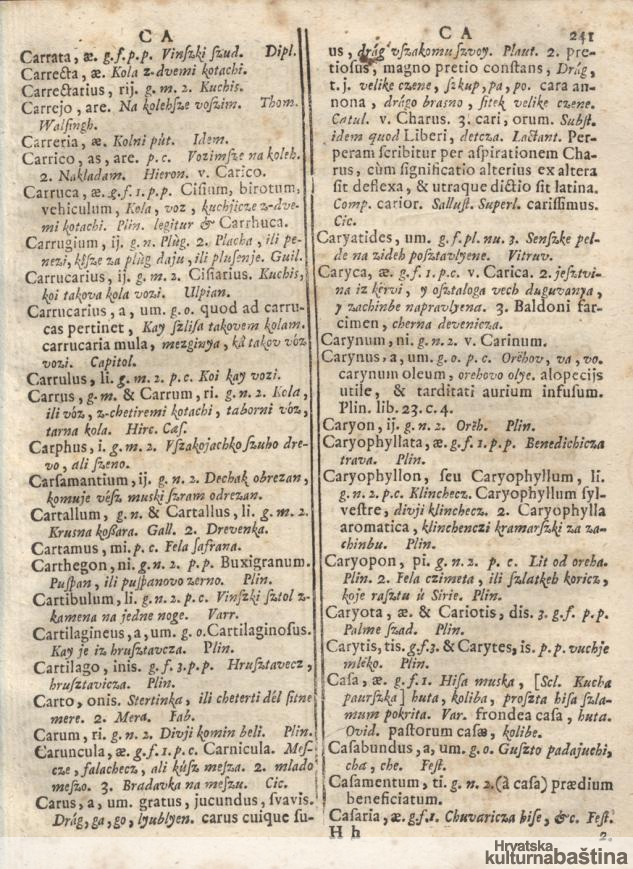 C A
Carrata, æ. g. f. p. p. Vinſzki ſzud. Dipl.
Carrecta, æ. Kola z-dvemi kotachi.
Carrectarius, rij. g. m. 2. Kuchis.
Carrejo, are. Na kolehſze voſzim. Thom.
Walſingh.
Carreria, æ. Kolni pút. Idem.
Carrico, as, are. p. c. Vozimſze na koleh.
2. Nakladam. Hieron. v. Carico.
Carruca, æ. g. f. 1. p. p. Ciſium, birotum,
vehiculum, Kola, voz, kuchjicze z-dve-
mi kotachi. Plin. legitur & Carrhuca.
Carrugium, ij. g. n. Plùg. 2. Placha, ili pe-
nezi, kiſze za plùg daju, ili pluſenje. Guil.
Carrucarius, ij. g. m. 2. Ciſiarius. Kuchis,
koi takova kola vozi. Ulpian.
Carrucarius, a, um. g. o. quod ad carru-
cas pertinet, Kay ſzliſa takovem kolam.
carrucaria mula, mezginya, kà takov vóz
vozi. Capitol.
Carrulus, li. g. m. 2. p. c. Koi kay vozi.
Carrus, g. m. & Carrum, ri. g. n. 2. Kola,
ili vóz, z-chetiremi kotachi, taborni vóz,
tarna kola. Hirc. Cæſ.
Carphus, i. g. m. 2. Vſzakojachko ſzuho dre-
vo, ali ſzeno.
Carſamantium, ij. g. n. 2. Dechak obrezan,
komuje vèſz muski ſzram odrezan.
Cartallum, g. n. & Cartallus, li. g. m. 2.
Krusna koſſara. Gall. 2. Drevenka.
Cartamus, mi. p. c. Fela ſafrana.
Carthegon, ni. g. n. 2. p. p. Buxigranum.
Puſpan, ili puſpanovo zerno. Plin.
Cartibulum, li. g. n. 2. p. c. Vinſzki ſztol z-
kamena na jedne noge. Varr.
Cartilagineus, a, um. g. o. Cartilaginoſus.
Kay je iz hruſztavcza. Plin.
Cartilago, inis. g. f. 3. p. p. Hruſztavecz,
hruſztavicza. Plin.
Carto, onis. Stertinka, ili cheterti dél ſitne
mere. 2. Mera. Fab.
Carum, ri. g. n. 2. Divji komin beli. Plin.
Caruncula, æ. g. f. 1. p. c. Carnicula. Meſ-
cze, falachecz, ali kúſz meſza. 2. mlado
meſzo. 3. Bradavka na meſzu. Cic.
Carus, a, um. gratus, jucundus, ſvavis.
Drág, ga, go, lyublyen. carus cuique ſu-
C A 241
us, drág vſzakomu ſzvoy. Plaut. 2. pre-
tioſus, magno pretio conſtans, Drág,
t. j. velike czene, ſzkup, pa, po. cara an-
nona, drágo brasno, ſitek velike czene.
Catul. v. Charus. 3. cari, orum. Subſt.
idem quod Liberi, detcza. Lactant. Per-
peram ſcribitur per aſpirationem Cha-
rus, cùm ſignificatio alterius ex altera
ſit deflexa, & utraque dictio ſit latina.
Comp. carior. Salluſt. Superl. cariſſimus.
Cic.
Caryatides, um. g. f. pl. nu. 3. Senſzke pel-
de na zideh poſztavlyene. Vitruv.
Caryca, æ. g. f. 1. p. c. v. Carica. 2. jeſztvi-
na iz kèrvi, y oſztaloga vech duguvanya,
y zachinbe napravlyena. 3. Baldoni far-
cimen, cherna devenicza.
Carynum, ni. g. n. 2. v. Carinum.
Carynus, a, um. g. o. p. c. Orèhov, va, vo.
carynum oleum, orehovo olye. alopecijs
utile, & tarditati aurium infuſum.
Plin. lib. 23. c. 4.
Caryon, ij. g. n. 2. Orèh. Plin.
Caryophyllata, æ. g. f. 1. p. p. Benedichicza
trava. Plin.
Caryophyllon, ſeu Caryophyllum, li.
g. n. 2. p. c. Klinchecz. Caryophyllum ſyl-
veſtre, divji klinchecz. 2. Caryophylla
aromatica, klinchenczi kramarſzki za za-
chinbu. Plin.
Caryopon, pi. g. n. 2. p. c. Lit od oreha.
Plin. 2. Fela czimeta, ili ſzlatkeh koricz,
koje raſztu ù Sirie. Plin.
Caryota, æ. & Cariotis, dis. 3. g. f. p. p.
Palme ſzad. Plin.
Carytis, tis. g. f. 3. & Carytes, is. p. p. vuchje
mléko. Plin.
Caſa, æ. g. f. 1. Hiſa muska, [Scl. Kucha
paurſzka] huta, koliba, proſzta hiſa ſzla-
mum pokrita. Var. frondea caſa, huta.
Ovid. paſtorum caſæ, kolibe.
Caſabundus, a, um. g. o. Guſzto padajuchi,
cha, che. Feſt.
Caſamentum, ti. g. n. 2. (à caſa) prædium
beneficiatum.
Caſaria, æ. g. f. 1. Chuvaricza hiſe, &c. Feſt.
H h 2.
Hrvatska
kulturnabaština